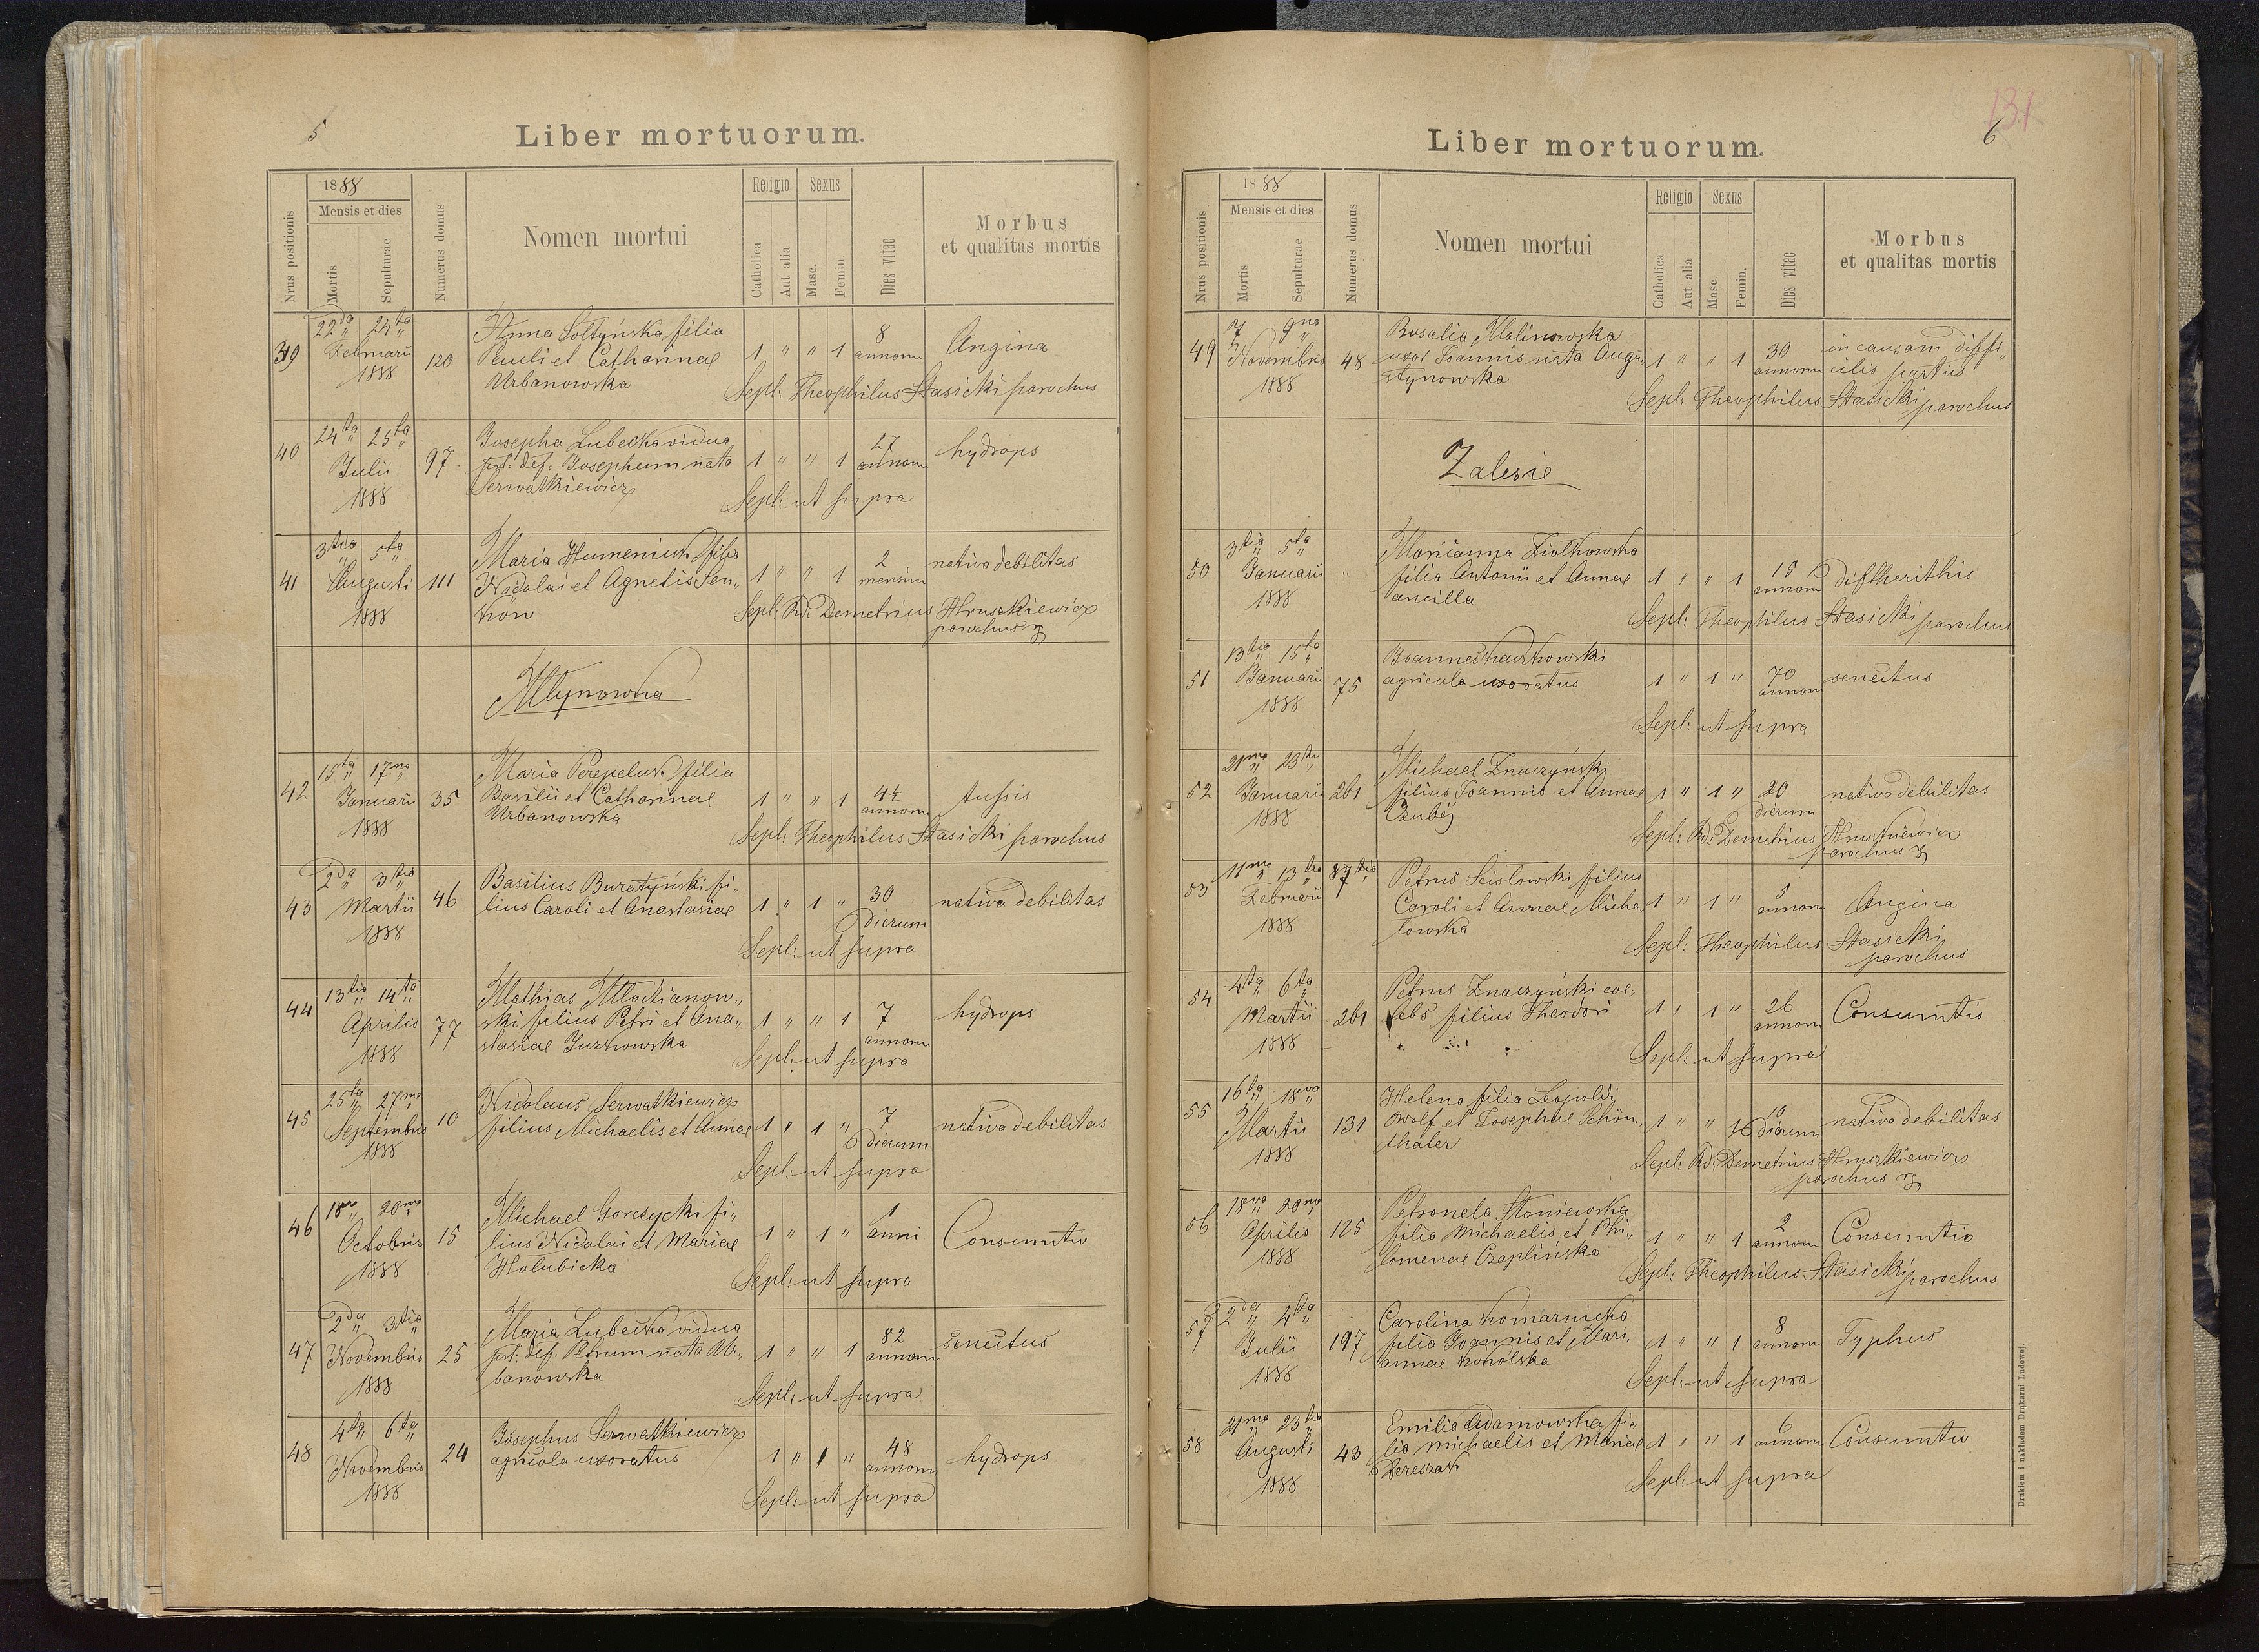 5
Liber mortuorum.
Nrus positionis
1888
Mensis et dies
Mortis
Sepulturae
Numerus domus
Nomen mortui
Religio
Catholica
Aut alia
Sexus
Masc.
Femin.
Dies vitae
Morbus
et qualitas mortis
39 22da 24ta Februarii 1888 120
Anna Soltyńska filia
Pauli et Catharinae
Urbanowska
1 " " 1 8 annorum Angina
Sepl: Theophilus Stasicki parochus
40 24ta 25ta Julii 1888 97
Josepha Lubecka vidua
pst: def: Josephum nata
Serwatkiewicz
1 " " 1 27 annorum hydrops
Sepl: ut supra
41 3tia 5ta Augusti 1888 111
Maria Humeniuk filia
Nicolai et Agnetis Sen„
ków
1 " " 1 2 mensium nativa debilitas
Sepl: Rd: Demetrius Hruszkiewicz
parochus
Młynowka
42 15ta 17ma Januarii 1888 35
Maria Perepeluk filia
Basilii et Catharinae
Urbanowska
1 " " 1 4½ annorum tussis
Sepl: Theophilus Stasicki parochus
43 2da 3tia Martii 1888 46
Basilius Buratyński fi„
lius Caroli et Anastasiae
1 " 1 " 30 dierum nativa debilitas
Sepl: ut supra
44 13tia 14ta Aprilis 1888 77
Mathias Młodianow„
ski filius Petri et Ana„
stasiae Juzkowska
1 " " 1 7 annorum hydrops
Sepl: ut supra
45 25ta 27ma Septembris 1888 10
Nicolaus Serwatkiewicz
filius Michaelis et Annae
1 " 1 " 7 dierum nativa debilitas
Sepl: ut supra
46 18va 20ma Octobris 1888 15
Michael Gorczycki fi„
lius Nicolai et Mariae
Hołubicka
1 " 1 " 1 anni Consumtio
Sepl: ut supra
47 2da 3tia Novembris 1888 25
Maria Lubecka vidua
pst: def: Petrum nata Ur„
banowska
1 " " 1 82 annorum senectus
Sepl: ut supra
48 4ta 6ta Novembris 1888 24
Josephus Serwatkiewicz
agricola uxoratus
1 " 1 " 48 annorum hydrops
Sepl: ut supra
131
6
Liber mortuorum.
Nrus positionis
1888
Mensis et dies
Mortis
Sepulturae
Numerus domus
Nomen mortui
Religio
Catholica
Aut alia
Sexus
Masc.
Femin.
Dies vitae
Morbus
et qualitas mortis
49 7 9na Novembris 1888 48
Rosalia Malinowska
uxor Joannis nata Augu„
stynowska
1 " " 1 30 annorum in causam diffi„
cilis partus
Sepl: Theophilus Stasicki parochus
Zalesie
50 3tia 5ta Januarii 1888 "
Marianna Ziołkowska
filia Antonii et Annae
ancilla
1 " " 1 15 annorum diftherithis
Sepl: Theophilus Stasicki parochus
51 13tia 15ta Januarii 1888 75
Joannes Kaczkowski
agricola uxoratus
1 " 1 " 70 annorum senectus
Sepl: ut supra
52 21ma 23tia Januarii 1888 261
Michael Znaczyński
filius Joannis et Annae
Czubéj
1 " 1 " 20 dierum nativa debilitas
Sepl: Rd: Demetrius Hruszkiewicz
parochus
53 11ma 13tia Februarii 1888
Petrus Scisłowski filius
Caroli et Annae Micha„
łowska
1 " 1 " 5 annorum Angina
Sepl: Theophilus Stasicki
parochus
54 4ta 6ta Martii 1888 261
Petrus Znaczyński coe„
lebs filius Theodori
1 " 1 " 26 annorum Consumtio
Sepl: ut supra
55 16ta 18va Martii 1888 131
Helena filia Leopoldi
Wolf et Josephae Schön„
thaler
1 " " 1 10 dierum nativa debilitas
Sepl: Rd: Demetrius Hruszkiewicz
parochus
56 18va 20ma Aprilis 1888 125
Petronela Staniewska
filia Michaelis et Phi„
lomenae Czaplińska
1 " " 1 2 annorum Consumtio
Sepl: Theophilus Stasicki parochus
57 2da 4ta Julii 1888 197
Carolina Komarnicka
filia Joannis et Mari„
annae Kokolska
1 " " 1 8 annorum Typhus
Sepl: ut supra
58 21ma 23tia Augusti 1888 43
Emilia Adamowska fi„
lia Michaelis et Mariae
Dereszak
1 " " 1 6 annorum Consumtio
Sepl: ut supra
Drukiem i nakładem Drukarni Ludowej.